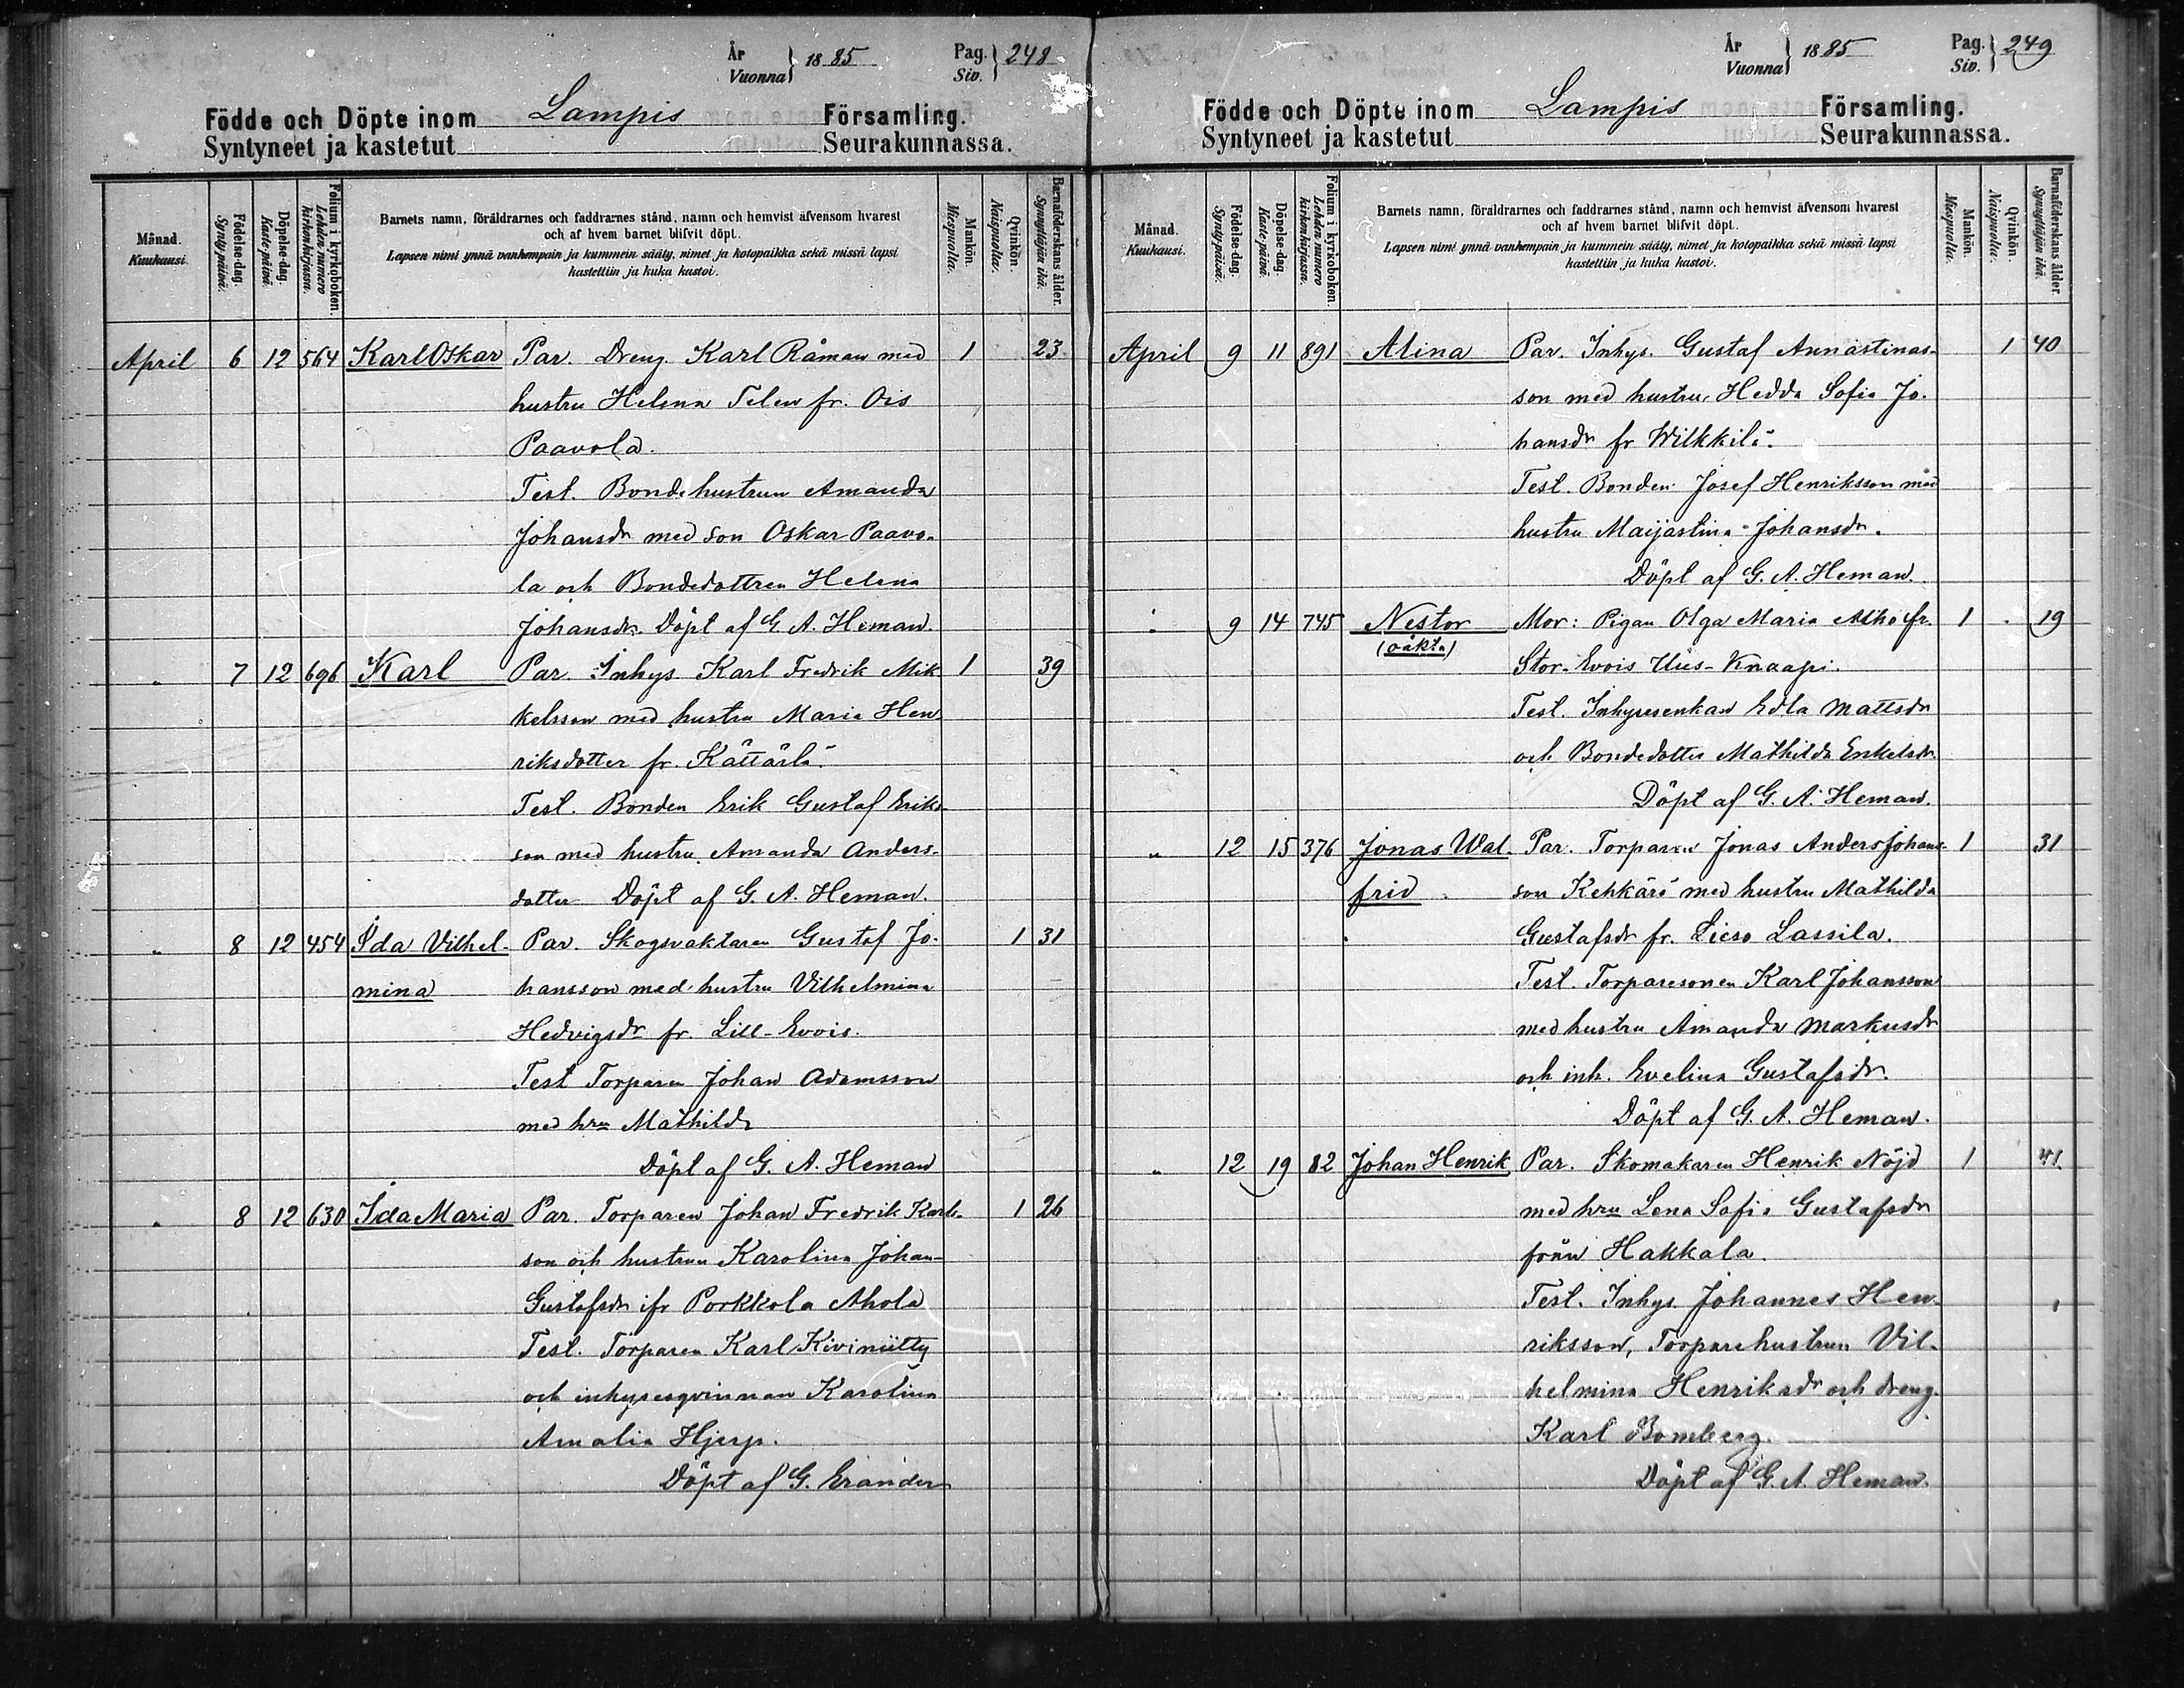 År
Vuonna } 1885
Pag.
Siv. } 248
Födde och Döpte inom Lampis Församling.
Syntyneet ja kastetut Seurakunnassa.
Månad.
Kuukausi.
Födelse-dag.
Syntypäivä.
Döpelse-dag.
Kastepäivä.
Folium i kyrkoboken.
Lehden numero kirkonkirjassa.
Barnets namn, föräldrarnes och faddrarnes stånd, namn och hemvist äfvensom hvarest
och af hvem barnet blifvit döpt.
Lapsen nimi ynnä vanhempain ja kummein sääty, nimet ja kotopaikka sekä missä lapsi
kastettiin ja kuka kastoi.
Mankön.
Miespuolta.
Qvinkön.
Naispuolta.
Barnaföderskans ålder.
Synnyttäjän ikä.
April 6 12 564 Karl Oskar Par. Dreng Karl Råman med 1 23
hustru Helena Telen fr. Ois
Paavola.
Test. Bondehustrun Amanda
Johansdr med son Oskar Paavo-
la och Bondedottren Helena
Johansdr. Döpt af G. A. Heman.
" 7 12 696 Karl Par. Inhys. Karl Fredrik Mik- 1 39
kelsson med hustru Maria Hen-
riksdotter fr. Kättärlä.
Test. Bonden Erik Gustaf Eriks-
son med hustru Amanda Anders-
dotter Döpt af G. A. Heman.
" 8 12 454 Ida Vilhel- Par. Skogvaktaren Gustaf Jo- 1 31
mina hansson med hustru Vilhelmina
Hedvigsdr fr. Lill-Evois.
Test Torparen Johan Adamsson
med hru Mathilda
Döpt af G. A. Heman
" 8 12 630 Ida Maria Par. Torparen Johan Fredrik Karls- 1 26
son och hustrun Karolina Johan-
Gustafsdr ifr Porkkola Ahola
Test. Torparen Karl Kiviniitty
och inhysesqvinnan Karolina
Amalia Hjerp.
Döpt af G. Erander
År
Vuonna } 1885
Pag.
Siv. } 249
Födde och Döpte inom Lampis Församling.
Syntyneet ja kastetut Seurakunnassa.
Månad.
Kuukausi.
Födelse-dag.
Syntypäivä.
Döpelse-dag.
Kastepäivä.
Folium i kyrkoboken.
Lehden numero kirkonkirjassa.
Barnets namn, föräldrarnes och faddrarnes stånd, namn och hemvist äfvensom hvarest
och af hvem barnet blifvit döpt.
Lapsen nimi ynnä vanhempain ja kummein sääty, nimet ja kotopaikka sekä missä lapsi
kastettiin ja kuka kastoi.
Mankön.
Miespuolta.
Qvinkön.
Naispuolta.
Barnaföderskans ålder.
Synnyttäjän ikä.
April 9 11 891 Alina Par. Inhys. Gustaf Annastinas- 1 40
son med hustru Hedda Sofia Jo-
hansdr fr Wilkkilä.
Test. Bonden Josef Henriksson med
hustru Maijastina Johansdr.
Döpt af G. A. Heman.
" 9 14 745 Nestor Mor: Pigan Olga Maria Alho fr. 1 19
(oäkta) Stor-Evois Uus-Knaapi.
Test. Inhysesenkan Edla Mattsdr
och Bondedotter Mathilda Enkelsdr.
Döpt af G. A. Heman.
" 12 15 376 Jonas Wal- Par. Torparen Jonas Anders Johans- 1 31
frid son Kehkäri med hustru Mathilda
Gustafsdr fr. Lieso Lassila.
Test. Torparesonen Karl Johansson
med hustru Amanda Markusdr
och inh. Evelina Gustafsdr.
Döpt af G. A. Heman.
" 12 19 82 Johan Henrik Par. Skomakaren Henrik Nöjd 1 41
med hru Lena Sofia Gustafsdr
från Hakkala.
Test. Inhys. Johannes Hen-
riksson, Torparehustrun Vil-
helmina Henriksdr och dreng.
Karl Bomberg.
Döpt af G. A. Heman.